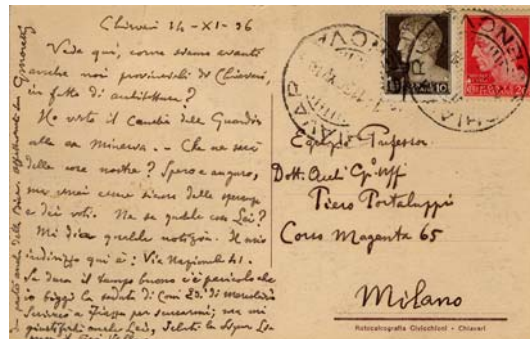 Chiavari 24-XI-36
Vede qui, come siamo avanti
anche noi provinciali di Chiavari,
in fatto di architettura?
Ho visto il Cambio della Guardia
alla Minerva... Che ne sarà
delle cose nostre? Spero e auguro,
ma vorrei essere sicuro delle speranze
e dei voti. Ne sa qualche cosa Lei?
Mi dica qualche notizia. Il mio
indirizzo qui è: Via Nazionale 41.
Se dura il tempo buono c'è pericolo che
io la seduta di mercoledì
Scrivo a per scusarmi; ma mi
giustifichi anche Lei, Saluti
anche della affettuosi G Moretti
10
Egregio Professor
Dott. Arch Gr. Uff
Piero Portaluppi
Corso Magenta 65
Milano
Rotocalcografia Civicchioni - Chiavari